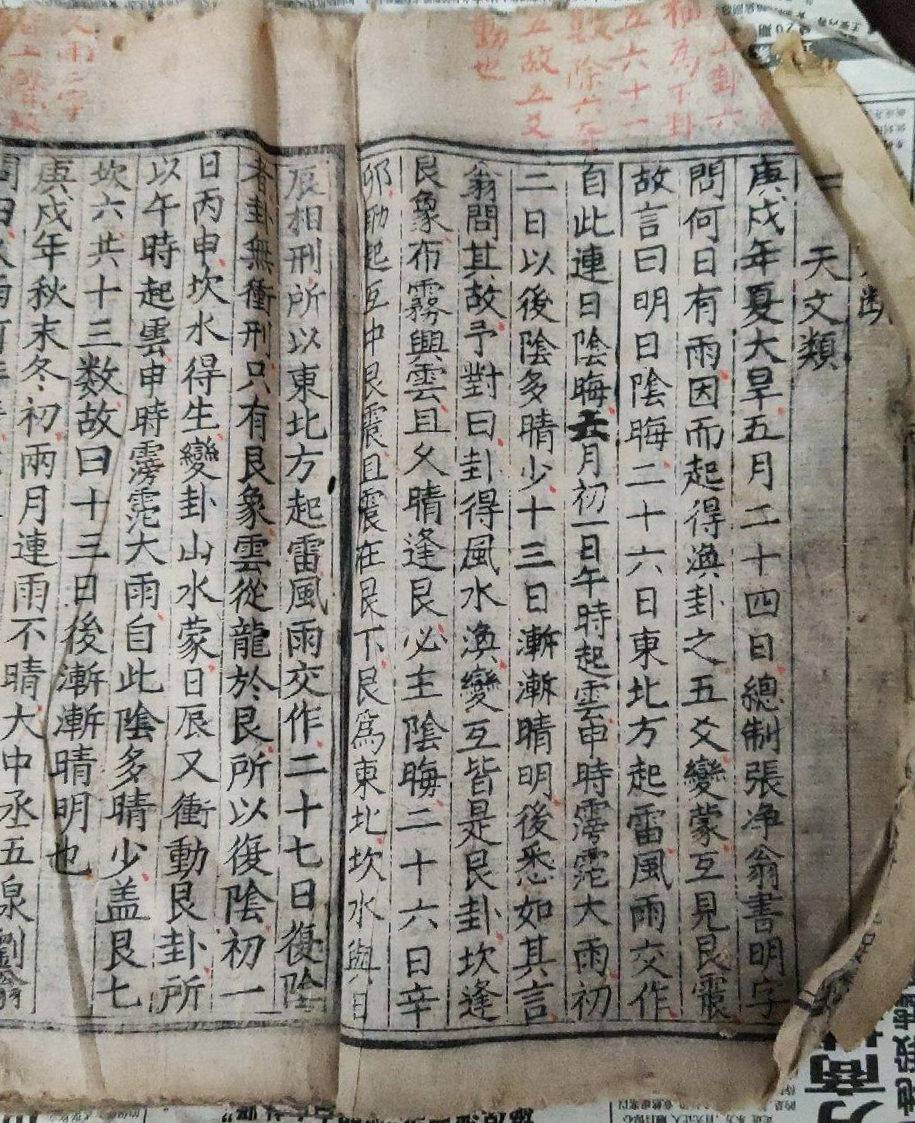 斷
天文類
庚戌年夏大旱五月二十四日總制張净翁書明字
問何日有雨因而起得渙卦之五爻變蒙互見艮震
故言曰明日陰晦二十六日東北方起雷風雨交作
自此連日陰晦六月初一日午時起雲申時霶霑大雨初
二日以後陰多晴少十三日漸漸晴明後悉如其言
翁問其故予對曰卦得風水渙變互皆是艮卦坎逢
艮象布霧與雲且久晴逢艮必主陰晦二十六日辛
卯助起互中艮震且震在艮下艮為東北坎水與日
辰相刑所以東北方起雷風雨交作二十七日復陰
者卦無衝刑只有艮象雲從龍於艮所以復陰初一
日丙申坎水得生變卦山水蒙日辰又衝動艮卦所
以午時起雲申時霶霑大雨自此陰多晴少盖艮七
坎六共十三数故曰十三日後漸漸晴明也
庚戌年秋末冬初兩月連雨不晴大中丞五泉劉翁
卦六
極為下卦
五六十一
數除六零
五故五爻
動也
雨之字